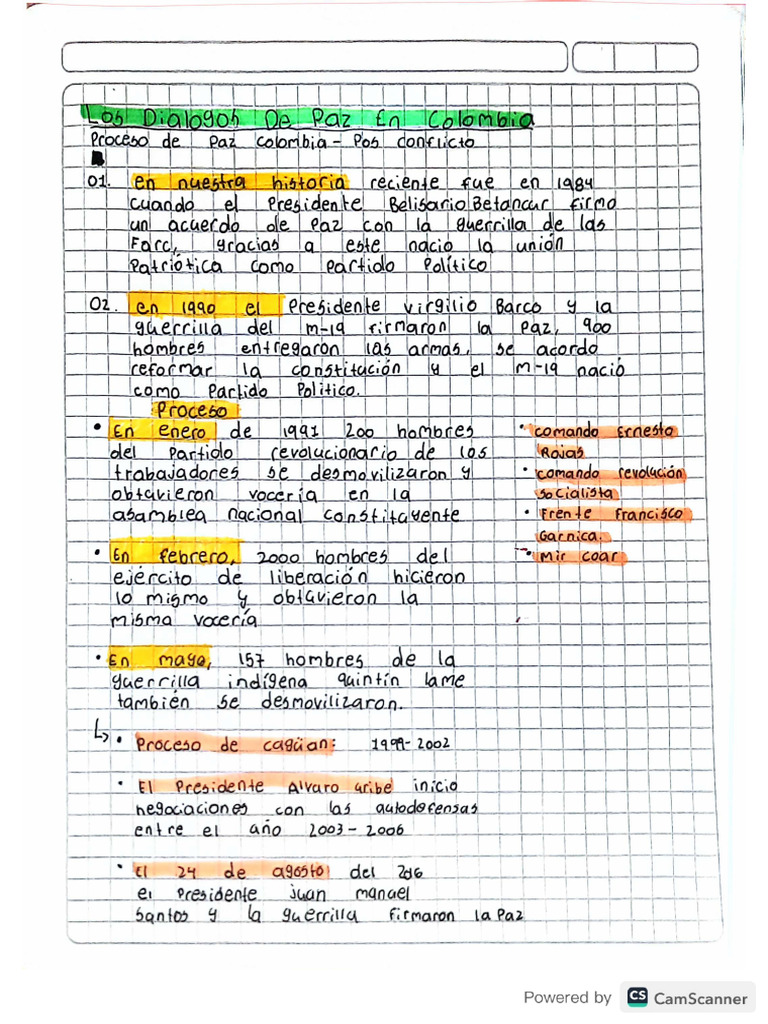 Los Dialogos De Paz En Colombia
Proceso de paz colombia - Pos conflicto
01. en nuestra historia reciente fue en 1984
cuando el Presidente Belisario Betancur firmo
un acuerdo de Paz con la guerrilla de las
Farc, gracias a este nacio la unión
Patriótica como partido Político
02. en 1990 el Presidente virgilio Barco y la
guerrilla del m-19 firmaron la Paz, 900
hombres entregaron las armas, se acordo
reformar la constitución y el m-19 nació
como Partido Politico.
Proceso
• En enero de 1991 200 hombres
del Partido revolucionario de los
trabajadores se desmovilizaron y
obtuvieron vocería en la
asamblea nacional constituyente
• comando Ernesto
Rojas
• comando revolución
socialista
• Frente Francisco
Garnica.
• Mir coar
• En febrero, 2000 hombres del
ejército de liberación hicieron
lo mismo y obtuvieron la
misma vocería
• En mayo, 157 hombres de la
guerrilla indígena quintín lame
también se desmovilizaron.
↳ • Proceso de cagüan: 1999-2002
• El Presidente Alvaro uribe inicio
negociaciones con las autodefensas
entre el año 2003-2006
• El 24 de agosto del 2016
el Presidente juan manuel
Santos y la guerrilla firmaron la Paz
Powered by CS CamScanner